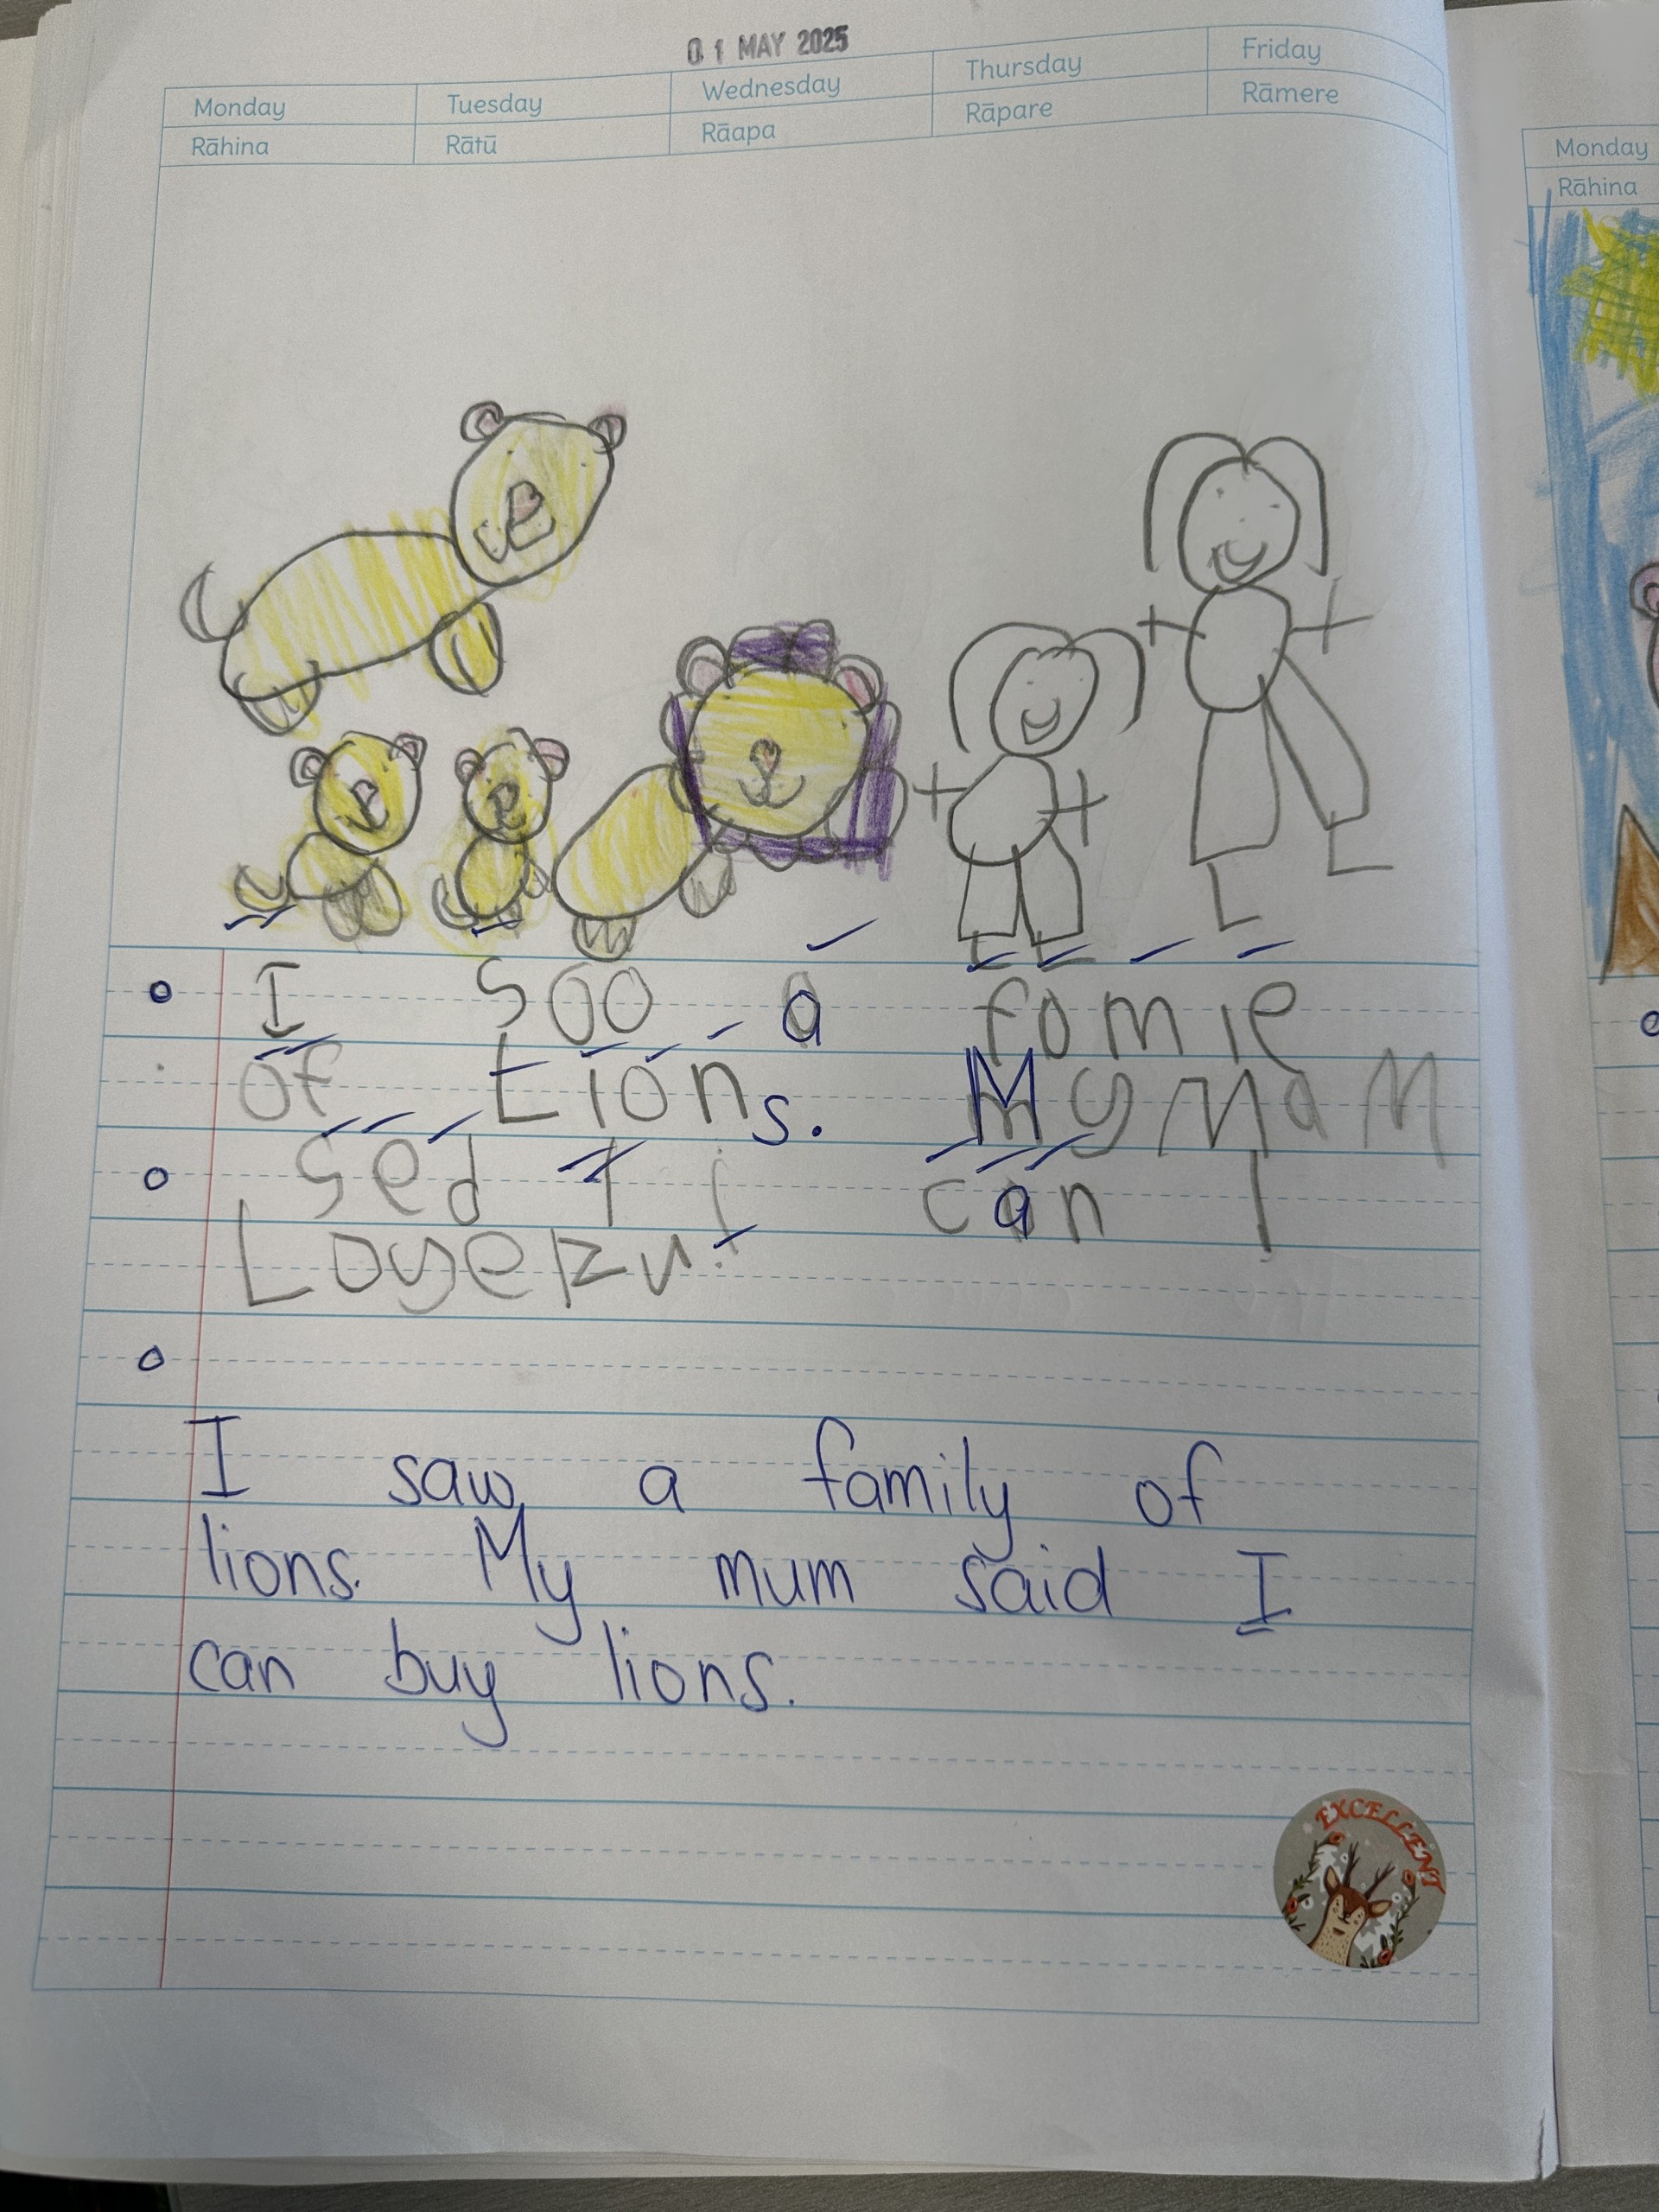 01 MAY 2025
Monday Tuesday Wednesday Thursday Friday
Rāhina Rātū Rāapa Rāpare Rāmere
Monday
Rāhina
I soo a fomie
of Lions. My MaM
sed I i can I
I saw a family of
lions. My mum said I
can buy lions.
EXCELLENT